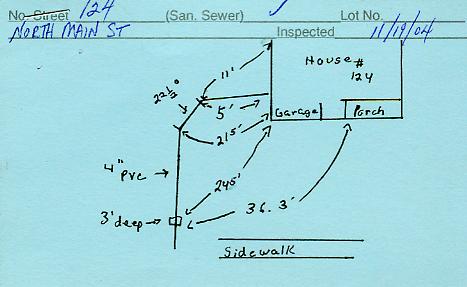 No. Street 124 (San. Sewer) ✓ Lot No.
NORTH MAIN ST Inspected 11/19/04
House #
124
11'
22½°
5'
Garage
Porch
21 5'
4"
PVC →
24 5'
36. 3'
3' deep →
Sidewalk